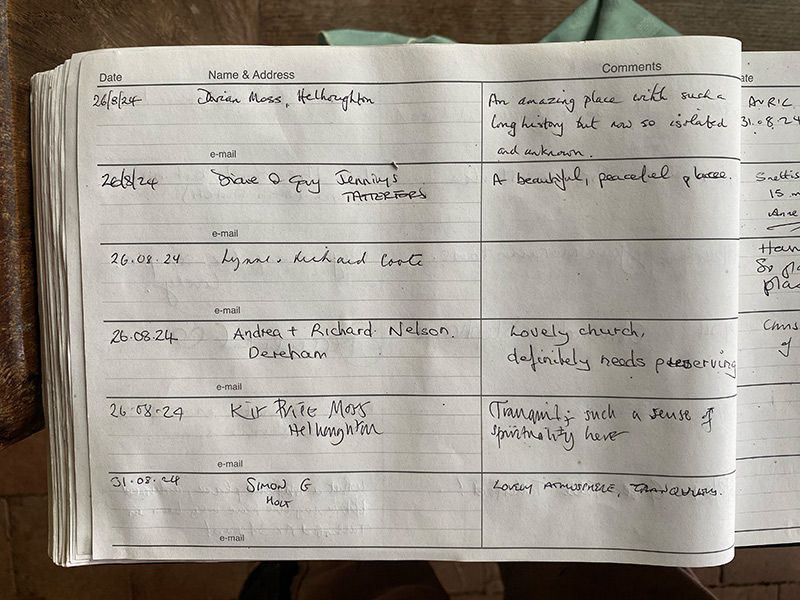 Date Name & Address Comments
26/8/24 Darian Moss, Helhoughton An amazing place with such a
long history but now so isolated
and unknown.
e-mail
26/8/24 Diane & Guy Jennings A beautiful, peaceful place.
TATTERFORD
e-mail
26.08.24 Lynne & Richard Coote
e-mail
26.08.24 Andrea + Richard Nelson. Lovely church,
Dereham definitely needs preserving
e-mail
26.08.24 Kit Price Moss Tranquil; such a sense of
Helhoughton spirituality here
e-mail
31.08.24 SIMON G LOVELY ATMOSPHERE, TRANQUILITY.
HOLT
e-mail
ate
31.08.24
15